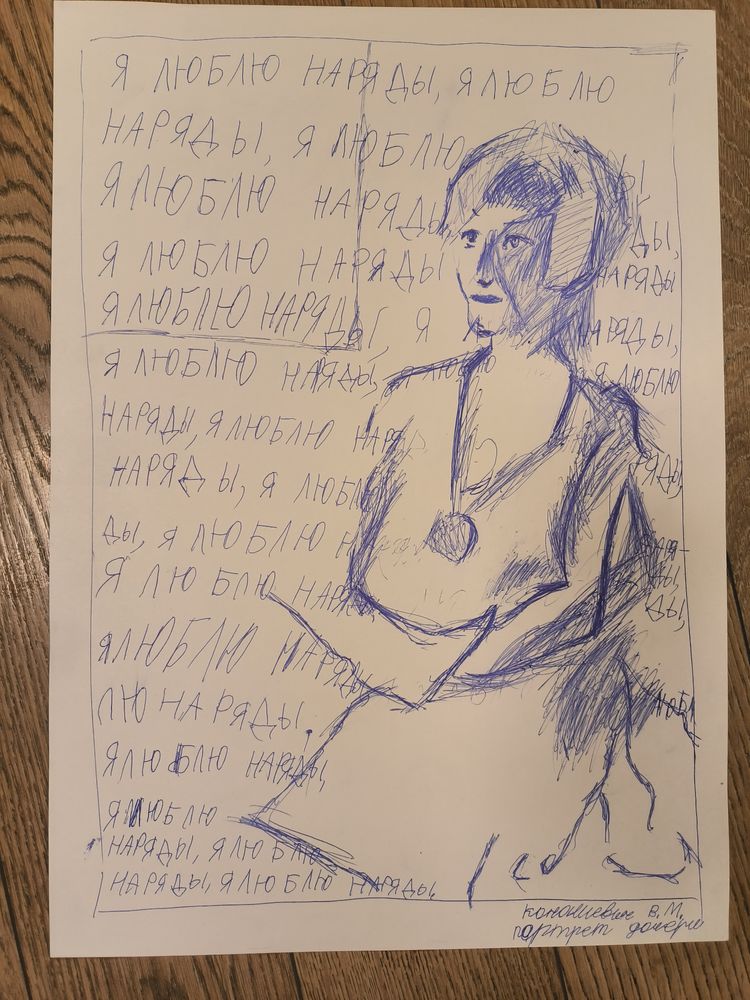 Я ЛЮБЛЮ НАРЯДЫ, Я ЛЮБЛЮ
НАРЯДЫ, Я ЛЮБЛЮ Ы,
Я ЛЮБЛЮ НАРЯДЫ, ДЫ,
Я ЛЮБЛЮ НАРЯДЫ НАРЯДЫ
Я ЛЮБЛЮ НАРЯДЫ, Я НАРЯДЫ,
Я ЛЮБЛЮ НАРЯДЫ, Я ЛЮБЛЮ Я ЛЮБЛЮ
НАРЯДЫ, Я ЛЮБЛЮ НАРЯД
НАРЯДЫ, Я ЛЮБЛЮ РЯДЫ,
ДЫ, Я ЛЮБЛЮ НАРЯ-
Я ЛЮБЛЮ НАРЯДЫ, ДЫ,
ДЫ,
Я ЛЮБЛЮ НАРЯДЫ
ЛЮ НАРЯДЫ, ЛЮБЛ
Я ЛЮБЛЮ НАРЯДЫ,
Я ЛЮБЛЮ
НАРЯДЫ, Я ЛЮБЛЮ
НАРЯДЫ, Я ЛЮБЛЮ НАРЯДЫ,
Конашевич В. М.
портрет дочери